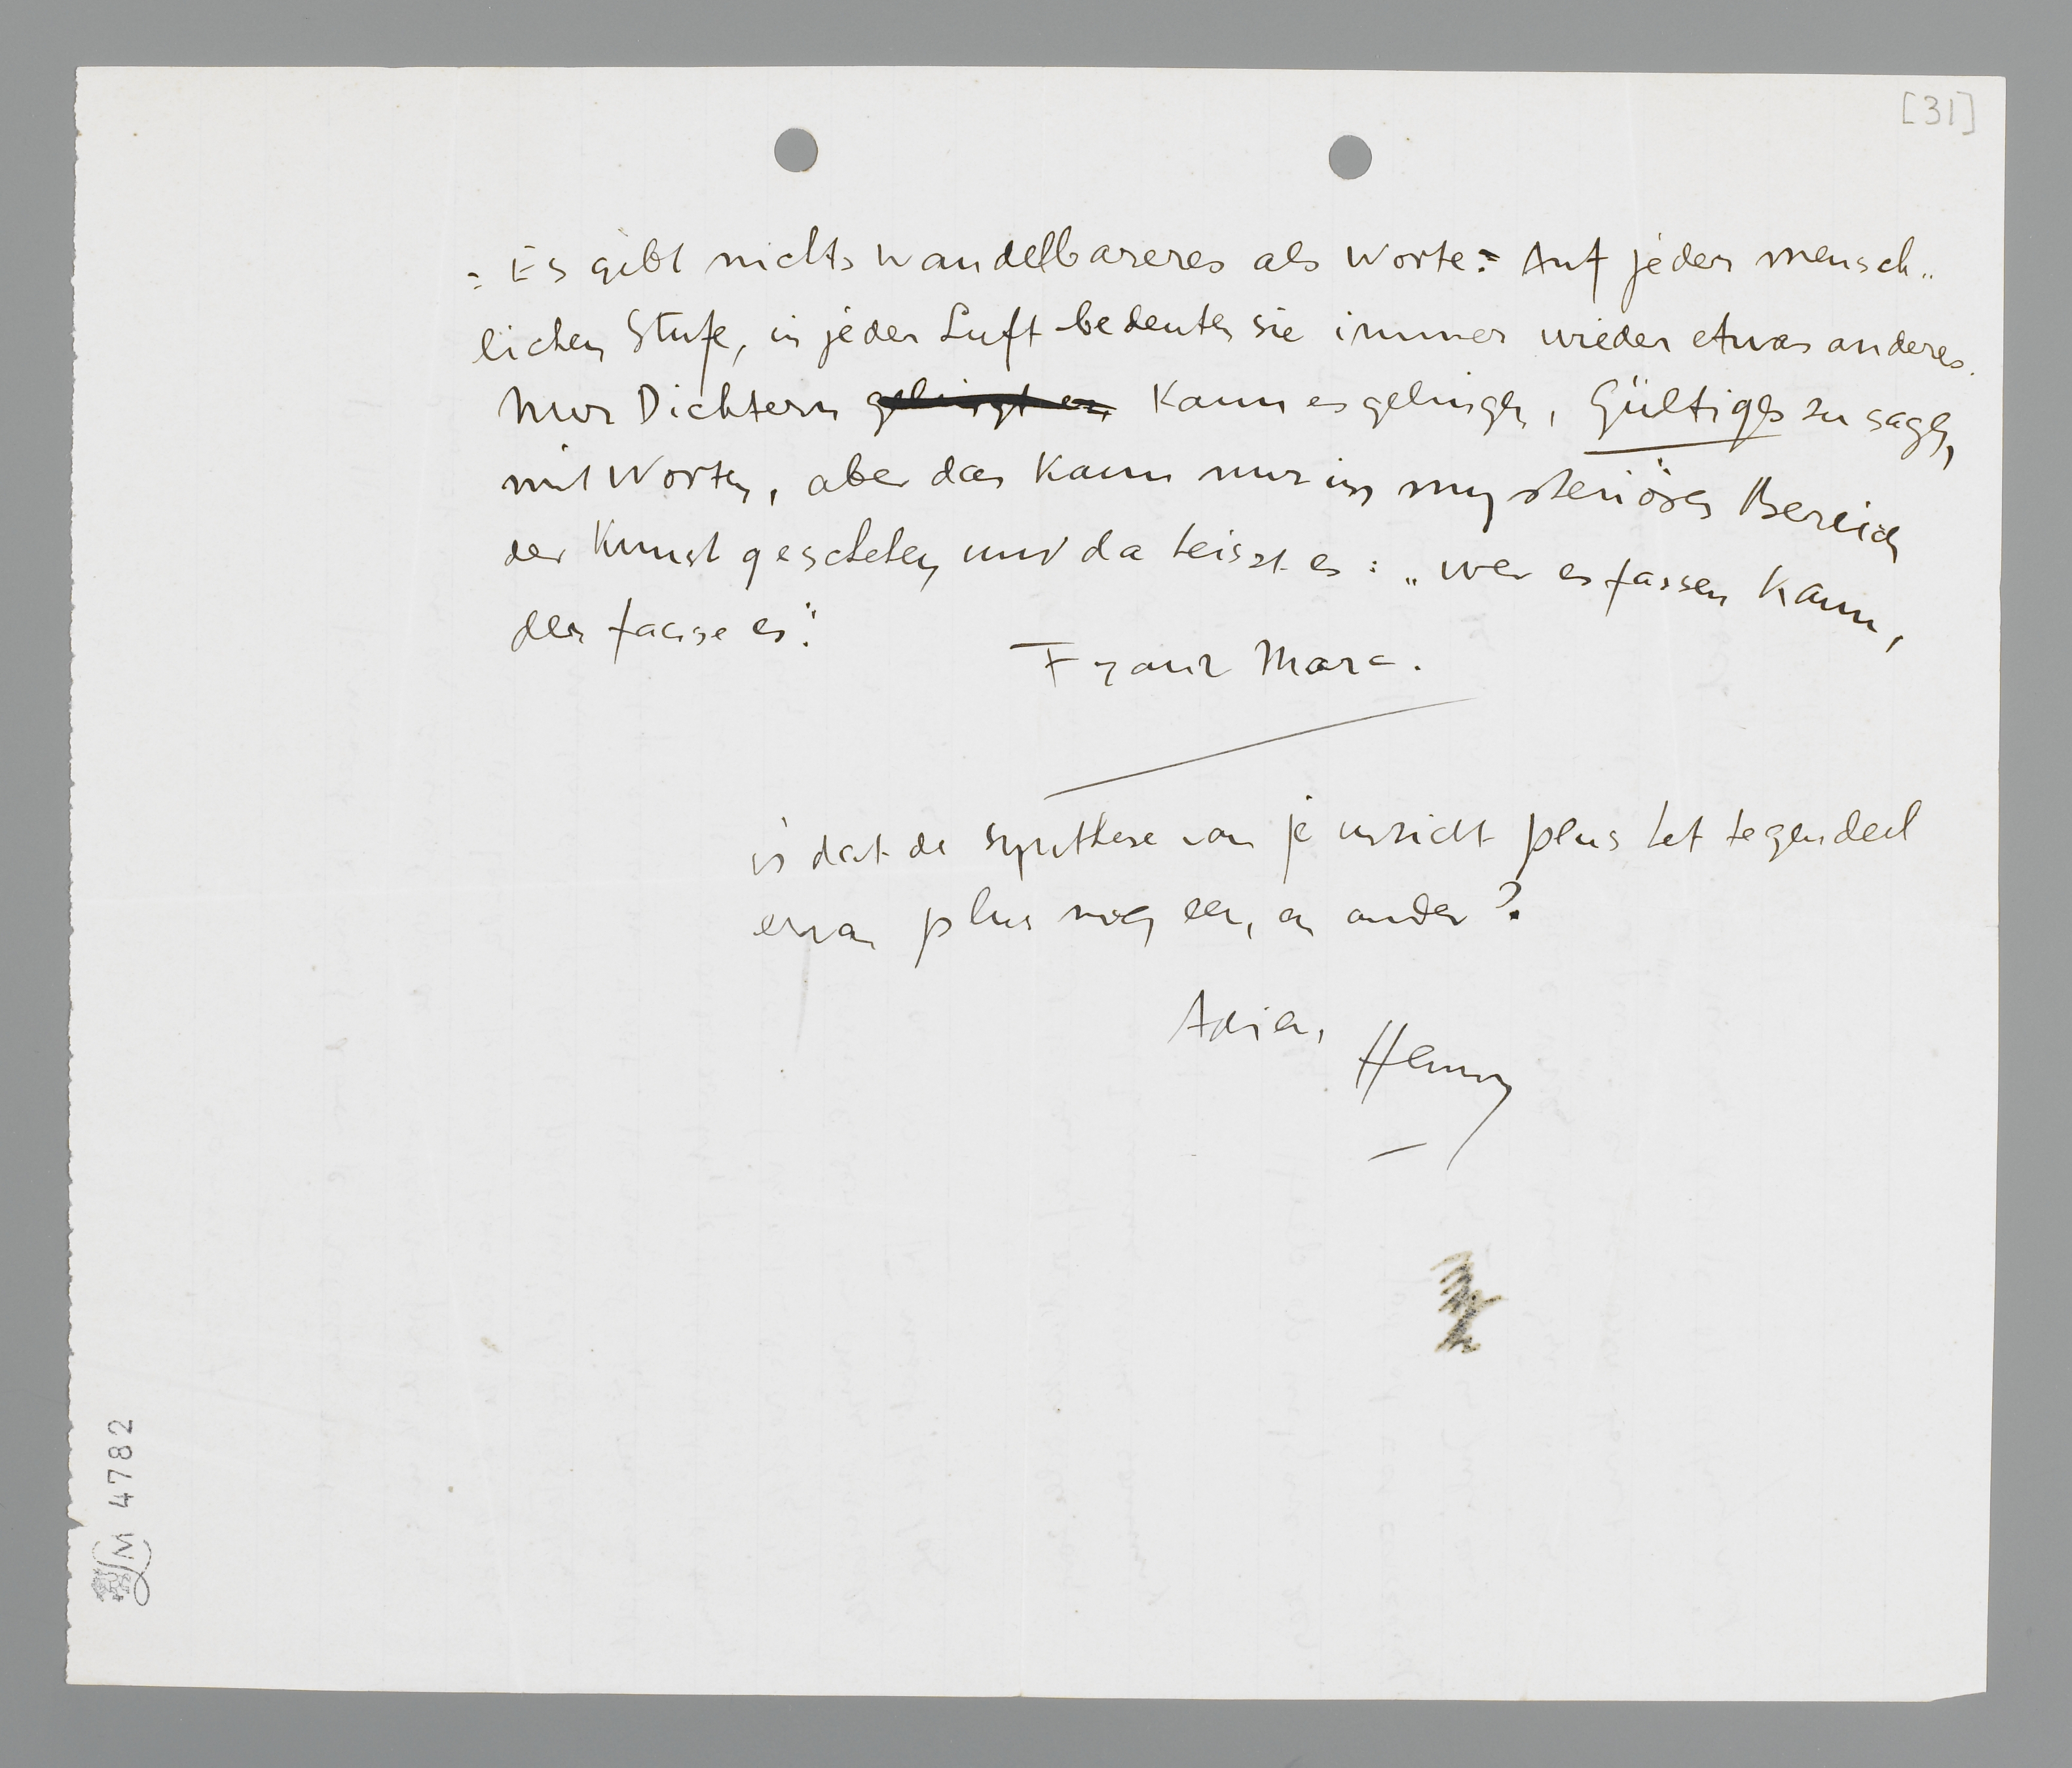 [31]
: Es gibt nichts wandelbareres als Worte: Auf jeder mensch„
lichen Stufe, in jeder Luft bedeuten sie immer wieder etwas anderes.
Nur Dichtern gelingt es kann es gelingen, Gültiges zu sagen,
mit Worten, aber das kann nur im mysteriösen Bereich
der Kunst geschehen und da heisst es: „wer es fassen kann,
der fasse es."
Franz Marc.
is dat de synthese van je inzicht plus het tegendeel
ervan plus nog een, en ander?
Adieu,
Henny
LM 4782